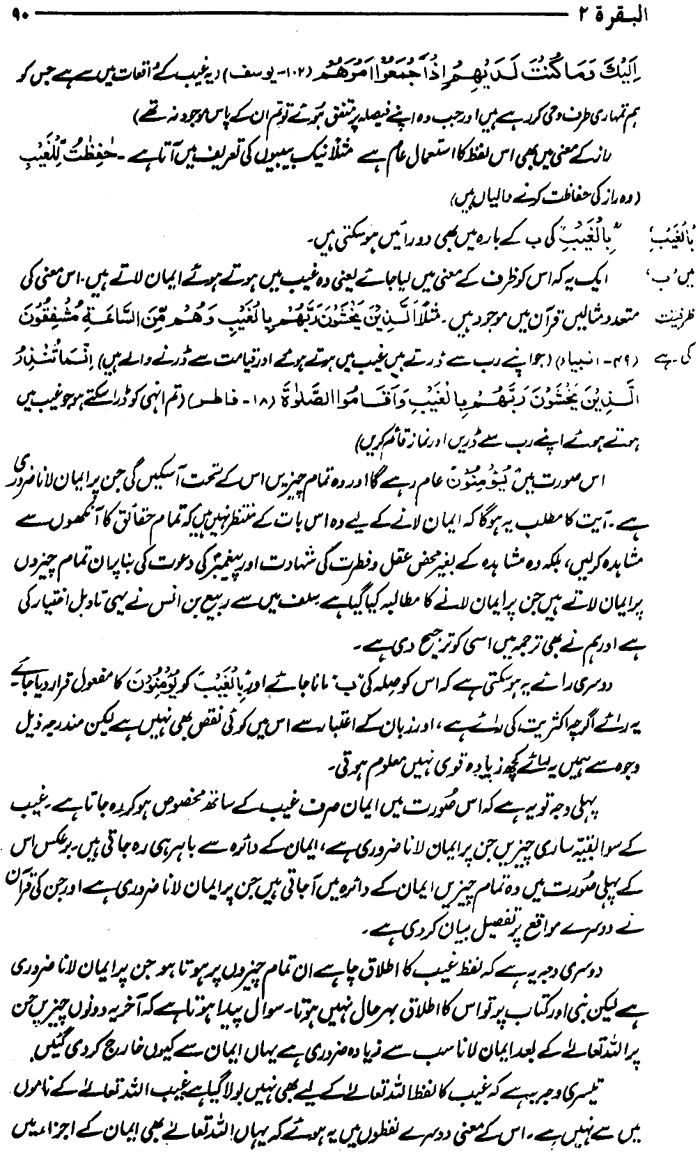 البقرة ۲ ۹۰
اِلَيْكَ وَمَا كُنْتَ لَدَيْهِمْ اِذْ اَجْمَعُوْا اَمْرَهُمْ (۱۰۲- یوسف) (یہ غیب کے واقعات میں سے ہے جس کو
ہم تمہاری طرف وحی کر رہے ہیں اور جب وہ اپنے فیصلہ پر متفق ہوئے تو تم ان کے پاس موجود نہ تھے)
راز کے معنی میں بھی اس لفظ کا استعمال عام ہے مثلاً نیک بیبیوں کی تعریف میں آتا ہے۔ حٰفِظٰتٌ لِّلْغَيْبِ
(وہ راز کی حفاظت کرنے والیاں ہیں)
'بالغیب' بِالْغَيْبِ کی ب کے بارہ میں بھی دو رائیں ہو سکتی ہیں۔
میں 'ب' ایک یہ کہ اس کو ظرف کے معنی میں لیا جائے یعنی وہ غیب میں ہوتے ہوئے ایمان لاتے ہیں۔ اس معنی کی
ظرفیت متعدد مثالیں قرآن میں موجود ہیں۔ مثلاً اَلَّذِيْنَ يَخْشَوْنَ رَبَّهُمْ بِالْغَيْبِ وَهُمْ مِّنَ السَّاعَةِ مُشْفِقُوْنَ
کی ہے (۴۹- انبیاء) (جو اپنے رب سے ڈرتے ہیں غیب میں ہوتے ہوئے اور قیامت سے ڈرنے والے ہیں) اِنَّمَا تُنْذِرُ
الَّذِيْنَ يَخْشَوْنَ رَبَّهُمْ بِالْغَيْبِ وَاَقَامُوا الصَّلٰوةَ (۱۸- فاطر) (تم انہی کو ڈرا سکتے ہو جو غیب میں
ہوتے ہوئے اپنے رب سے ڈریں اور نماز قائم کریں)
اس صورت میں يُؤْمِنُوْنَ عام رہے گا اور وہ تمام چیزیں اس کے تحت آ سکیں گی جن پر ایمان لانا ضروری
ہے۔ آیت کا مطلب یہ ہوگا کہ ایمان لانے کے لیے وہ اس بات کے منتظر نہیں ہیں کہ تمام حقائق کا آنکھوں سے
مشاہدہ کر لیں، بلکہ وہ مشاہدہ کے بغیر محض عقل و فطرت کی شہادت اور پیغمبرؐ کی دعوت کی بنا پر ان تمام چیزوں
پر ایمان لاتے ہیں جن پر ایمان لانے کا مطالبہ کیا گیا ہے۔ سلف میں سے ربیع بن انس نے یہی تاویل اختیار کی
ہے اور ہم نے بھی ترجمہ میں اسی کو ترجیح دی ہے۔
دوسری رائے یہ ہو سکتی ہے کہ اس کو صلہ کی 'ب' مانا جائے اور بِالْغَيْبَ کو يُؤْمِنُوْنَ کا مفعول قرار دیا جائے۔
یہ رائے اگرچہ اکثریت کی رائے ہے، اور زبان کے اعتبار سے اس میں کوئی نقص بھی نہیں ہے لیکن مندرجہ ذیل
وجوہ سے ہمیں یہ رائے کچھ زیادہ قوی نہیں معلوم ہوتی۔
پہلی وجہ تو یہ ہے کہ اس صورت میں ایمان صرف غیب کے ساتھ مخصوص ہو کر رہ جاتا ہے۔ غیب
کے سوا بقیہ ساری چیزیں جن پر ایمان لانا ضروری ہے، ایمان کے دائرہ سے باہر ہی رہ جاتی ہیں۔ برعکس اس
کے پہلی صورت میں وہ تمام چیزیں ایمان کے دائرہ میں آ جاتی ہیں جن پر ایمان لانا ضروری ہے اور جن کی قرآن
نے دوسرے مواقع پر تفصیل بیان کر دی ہے۔
دوسری وجہ یہ ہے کہ لفظ غیب کا اطلاق چاہے ان تمام چیزوں پر ہوتا ہو جن پر ایمان لانا ضروری
ہے لیکن نبی اور کتاب پر تو اس کا اطلاق بہرحال نہیں ہوتا۔ سوال پیدا ہوتا ہے کہ آخر یہ دونوں چیزیں جن
پر اللہ تعالیٰ کے بعد ایمان لانا سب سے زیادہ ضروری ہے یہاں ایمان سے کیوں خارج کر دی گئیں؟
تیسری وجہ یہ ہے کہ غیب کا لفظ اللہ تعالیٰ کے لیے بھی نہیں بولا گیا ہے غیب اللہ تعالیٰ کے ناموں
میں سے نہیں ہے۔ اس کے معنی دوسرے لفظوں میں یہ ہوئے کہ یہاں اللہ تعالیٰ بھی ایمان کے اجزاء میں